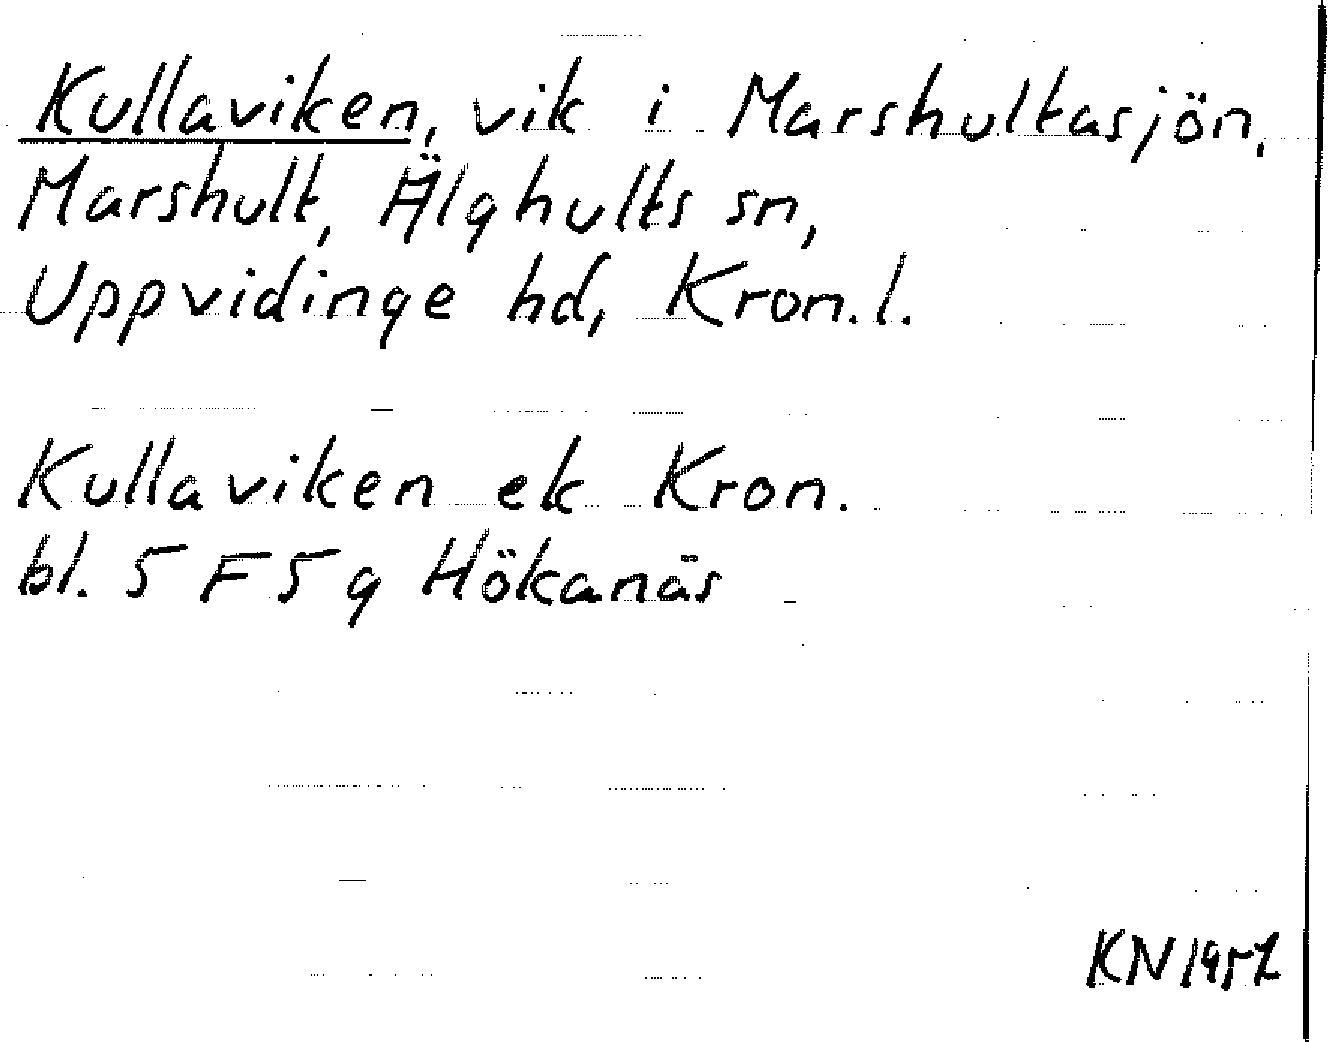 Kullaviken, vik i Marshultasjön,
Marshult, Älghults sn,
Uppvidinge hd, Kron.l.
Kullaviken ek Kron.
bl. 5 F 5 g Hökanäs
KN 1957